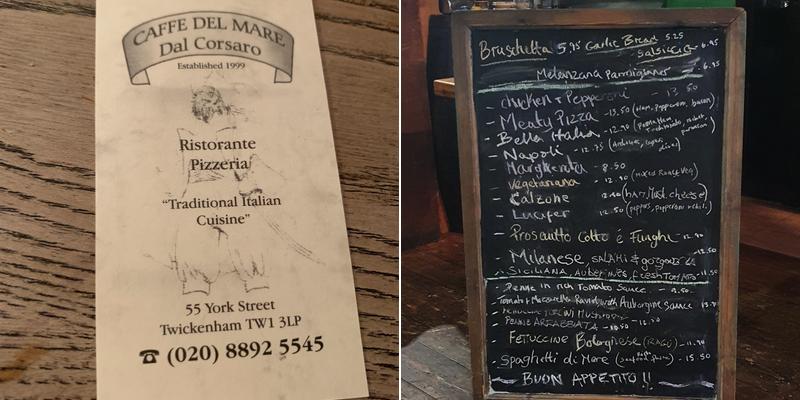 CAFFE DEL MARE
Dal Corsaro
Established 1999
Ristorante
Pizzeria
"Traditional Italian
Cuisine"
55 York Street
Twickenham TW1 3LP
☎ (020) 8892 5545
Bruschetta 5,95 Garlic Bread 5.25
Salsiccia 6.95
Melanzana Parmigiana - 6.95
- Chicken & Pepperoni - 13.50
- Meaty Pizza - 13.50 (Ham, Pepperoni, bacon)
- Bella Italia - 12.90
- Napoli - 12.75 (Anchovies, capers, olives)
- Margherita - 8.50
- Vegetariana - 12.90 (mixed Roast Veg)
- Calzone (ham, Must. cheese)
- Lucifer 12.50
- Prosciutto Cotto é Funghi - 12.90
- Milanese, SALAMI & gorgonz
- SICILIANA, AUBERGINES, FRESH TOMATO - 11.50
- Penne in rich Tomato Sauce - 9.50
Tomato & Mozzarella Ravioli with Aubergine Sauce
- PENNE ARRABBIATA - 10.50
- FETTUCCINE Bolognese (RAGÚ) - 11.90
- Spaghetti di Mare - 15.50
BUON APPETITO !!